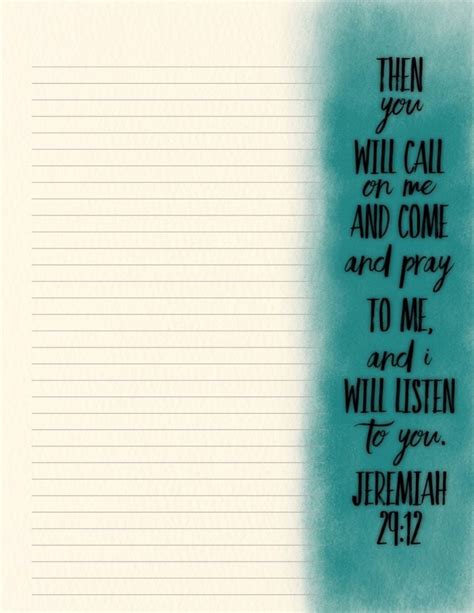 THEN
you
WILL CALL
on me
AND COME
and pray
TO ME,
and i
WILL LISTEN
to you.
JEREMIAH
29:12